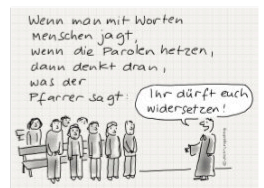 Wenn man mit Worten
Menschen jagt,
wenn die Parolen hetzen,
dann denkt dran,
was der
Pfarrer sagt:
Ihr dürft euch
widersetzen!